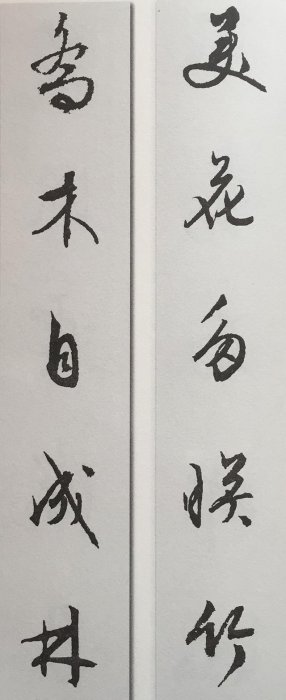 美花多映竹
乔木自成林